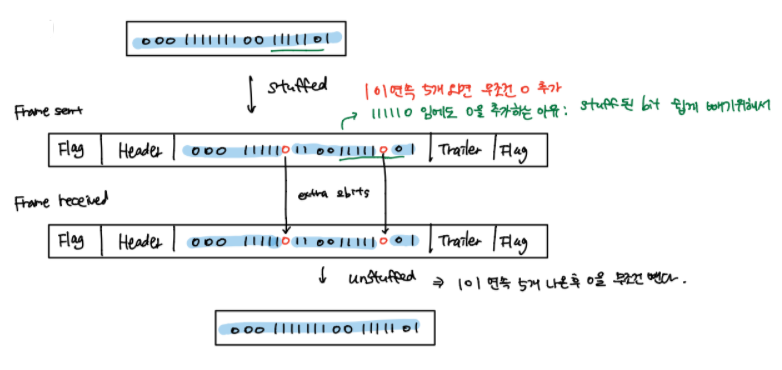 000 1111111 00 11111 01
stuffed
1이 연속 5개 오면 무조건 0 추가
→ 111110 임에도 0을 추가하는 이유: stuff된 bit 쉽게 빼기위해서
Frame sent
Flag Header 000 11111011 0011111001 Trailer Flag
extra 2bits
Frame received
Flag Header 000 11111011 0011111001 Trailer Flag
unstuffed ⇒ 1이 연속 5개 나온후 0을 무조건 뺀다.
000 1111111 00 11111 01